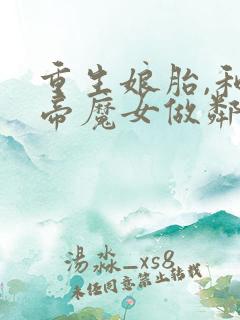 重生娘胎,和
帝魔女做鄰
湯淼_xs8
未经同意禁止转载